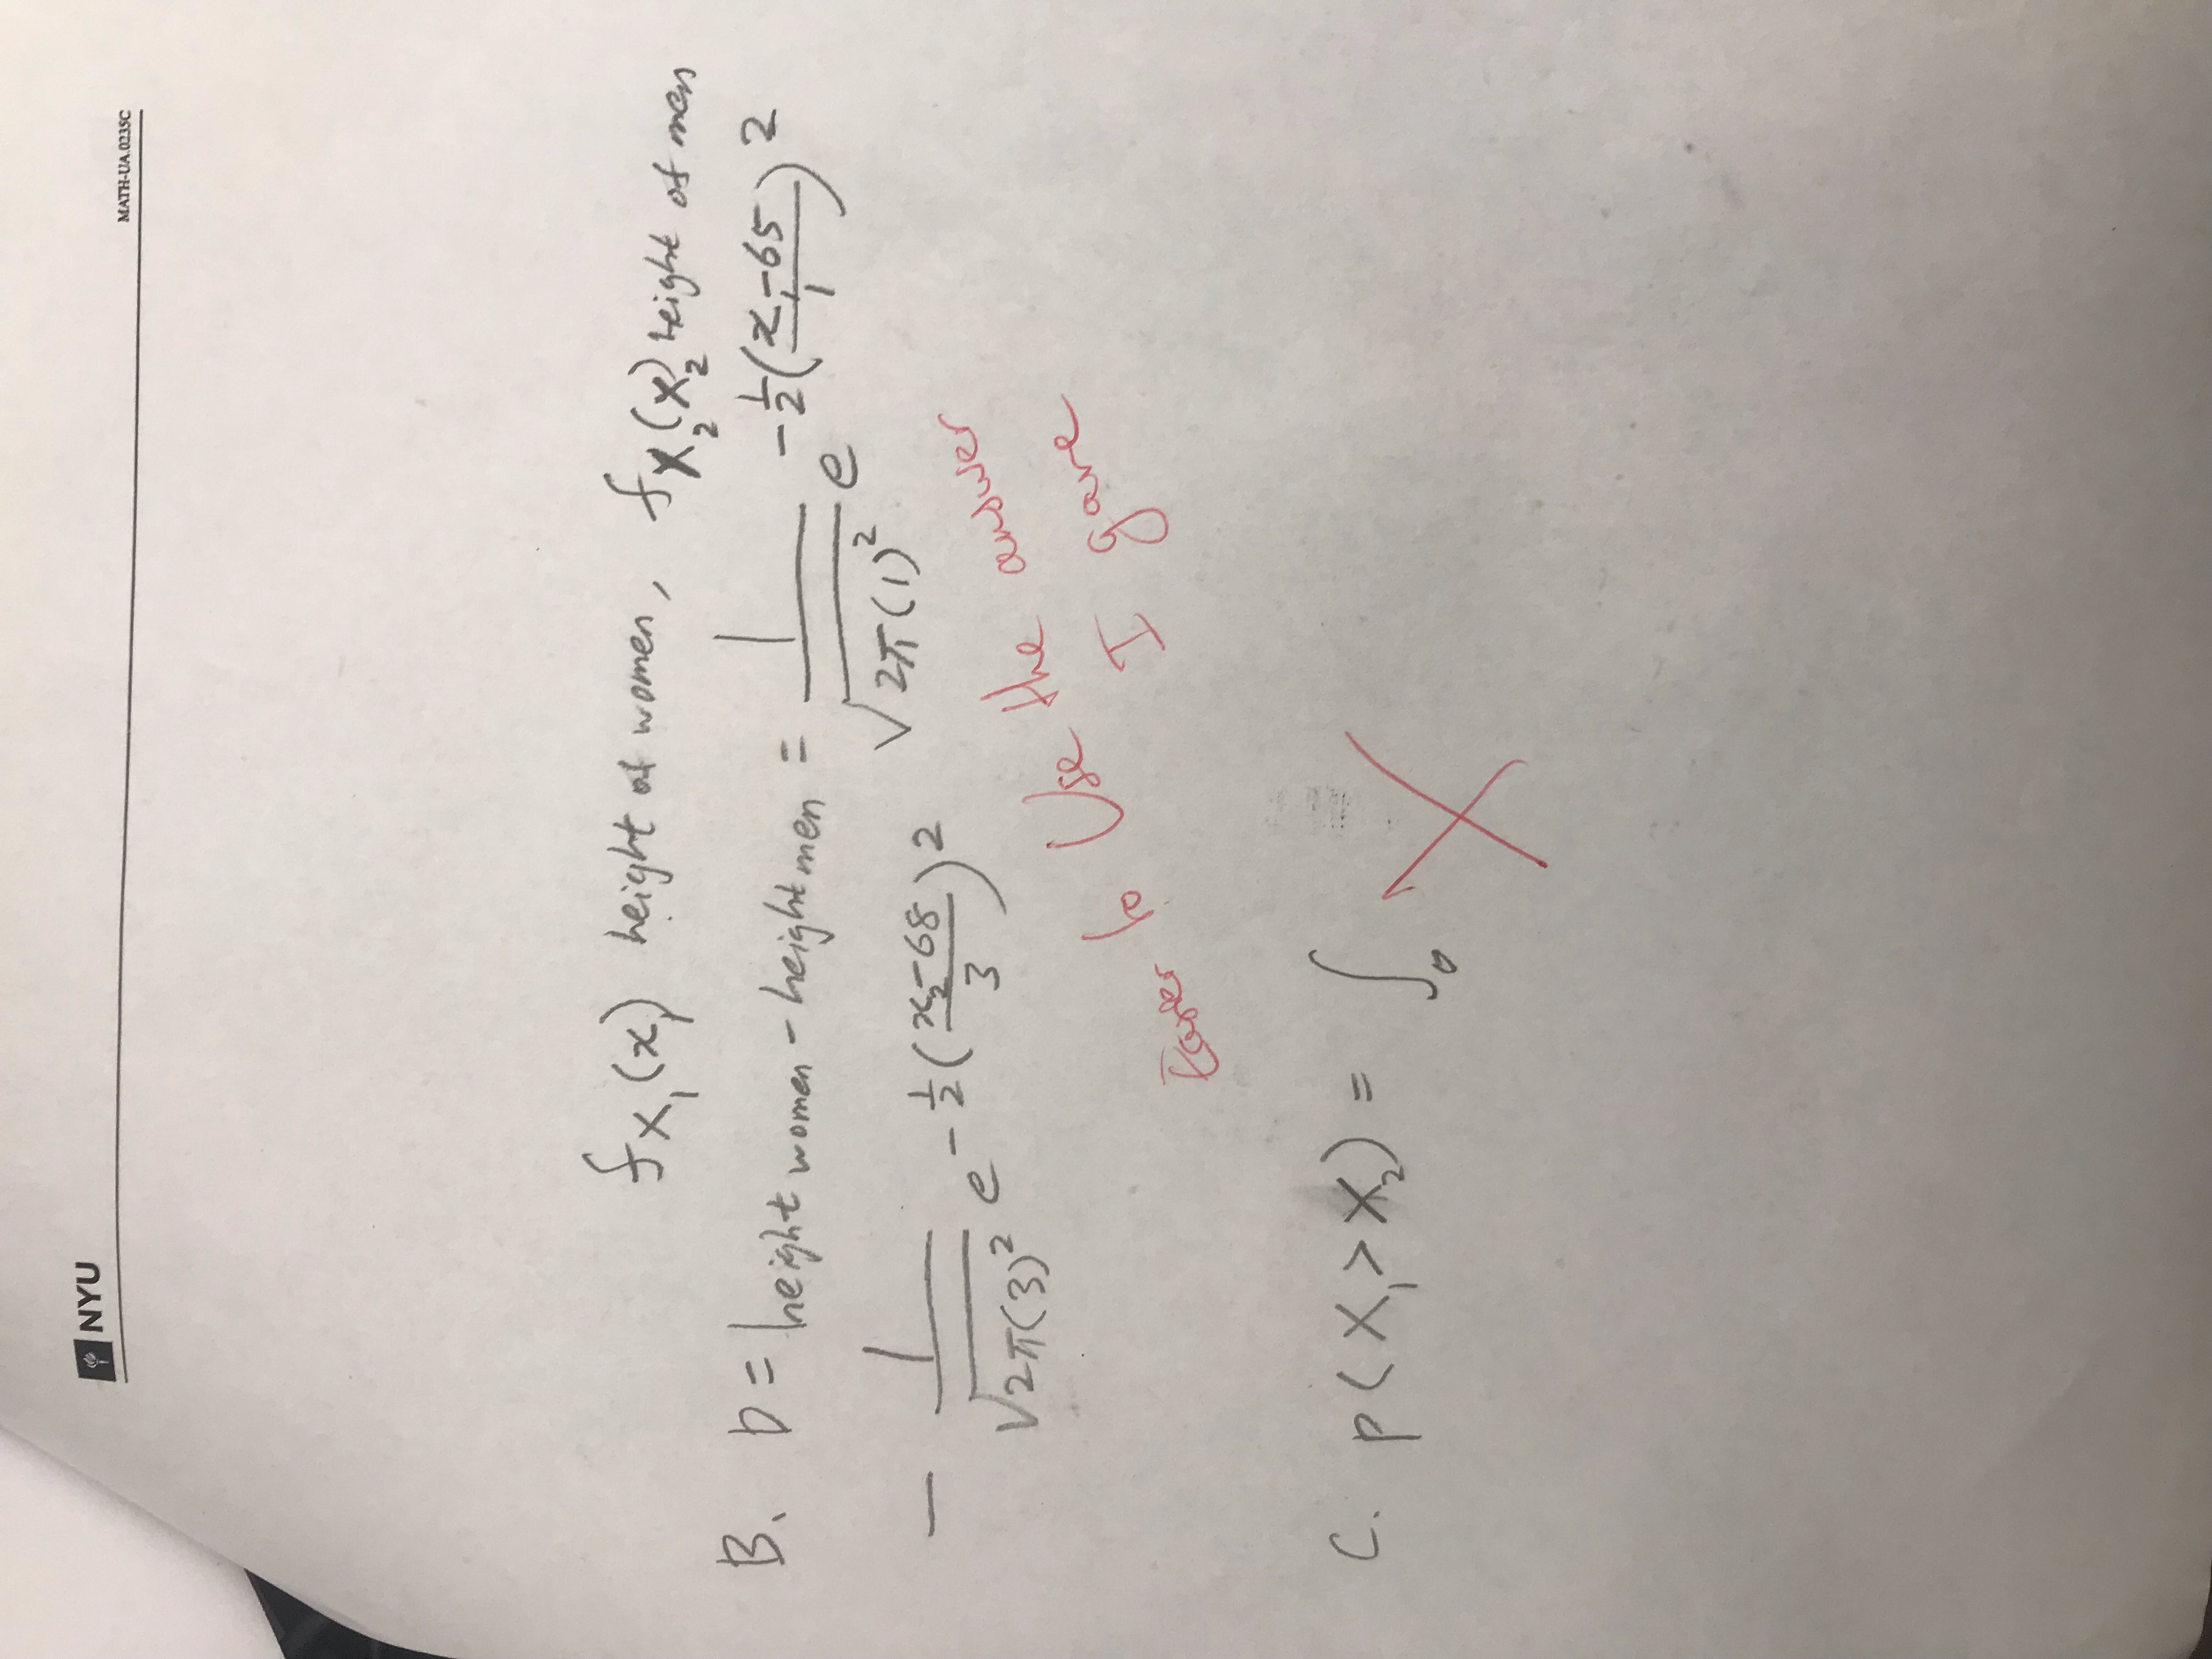 NYU
MATH-UA.0235C
f_{X_1}(x_1) height of women, f_{X_2}(x_2) height of men
B. D = height women - height men = \frac{1}{\sqrt{2π(1)^2}} e^{-\frac{1}{2}(\frac{x_1-65}{1})^2}
- \frac{1}{\sqrt{2π(3)^2}} e^{-\frac{1}{2}(\frac{x_2-68}{3})^2}
Easier to Use the answer
I gave
C. p(X_1 > X_2) = ∫_0